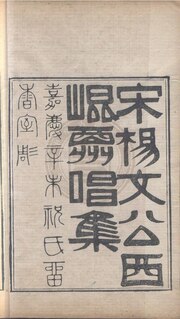 宋楊文公西
崐酬唱集
嘉慶辛未祝氏畱
香室彫